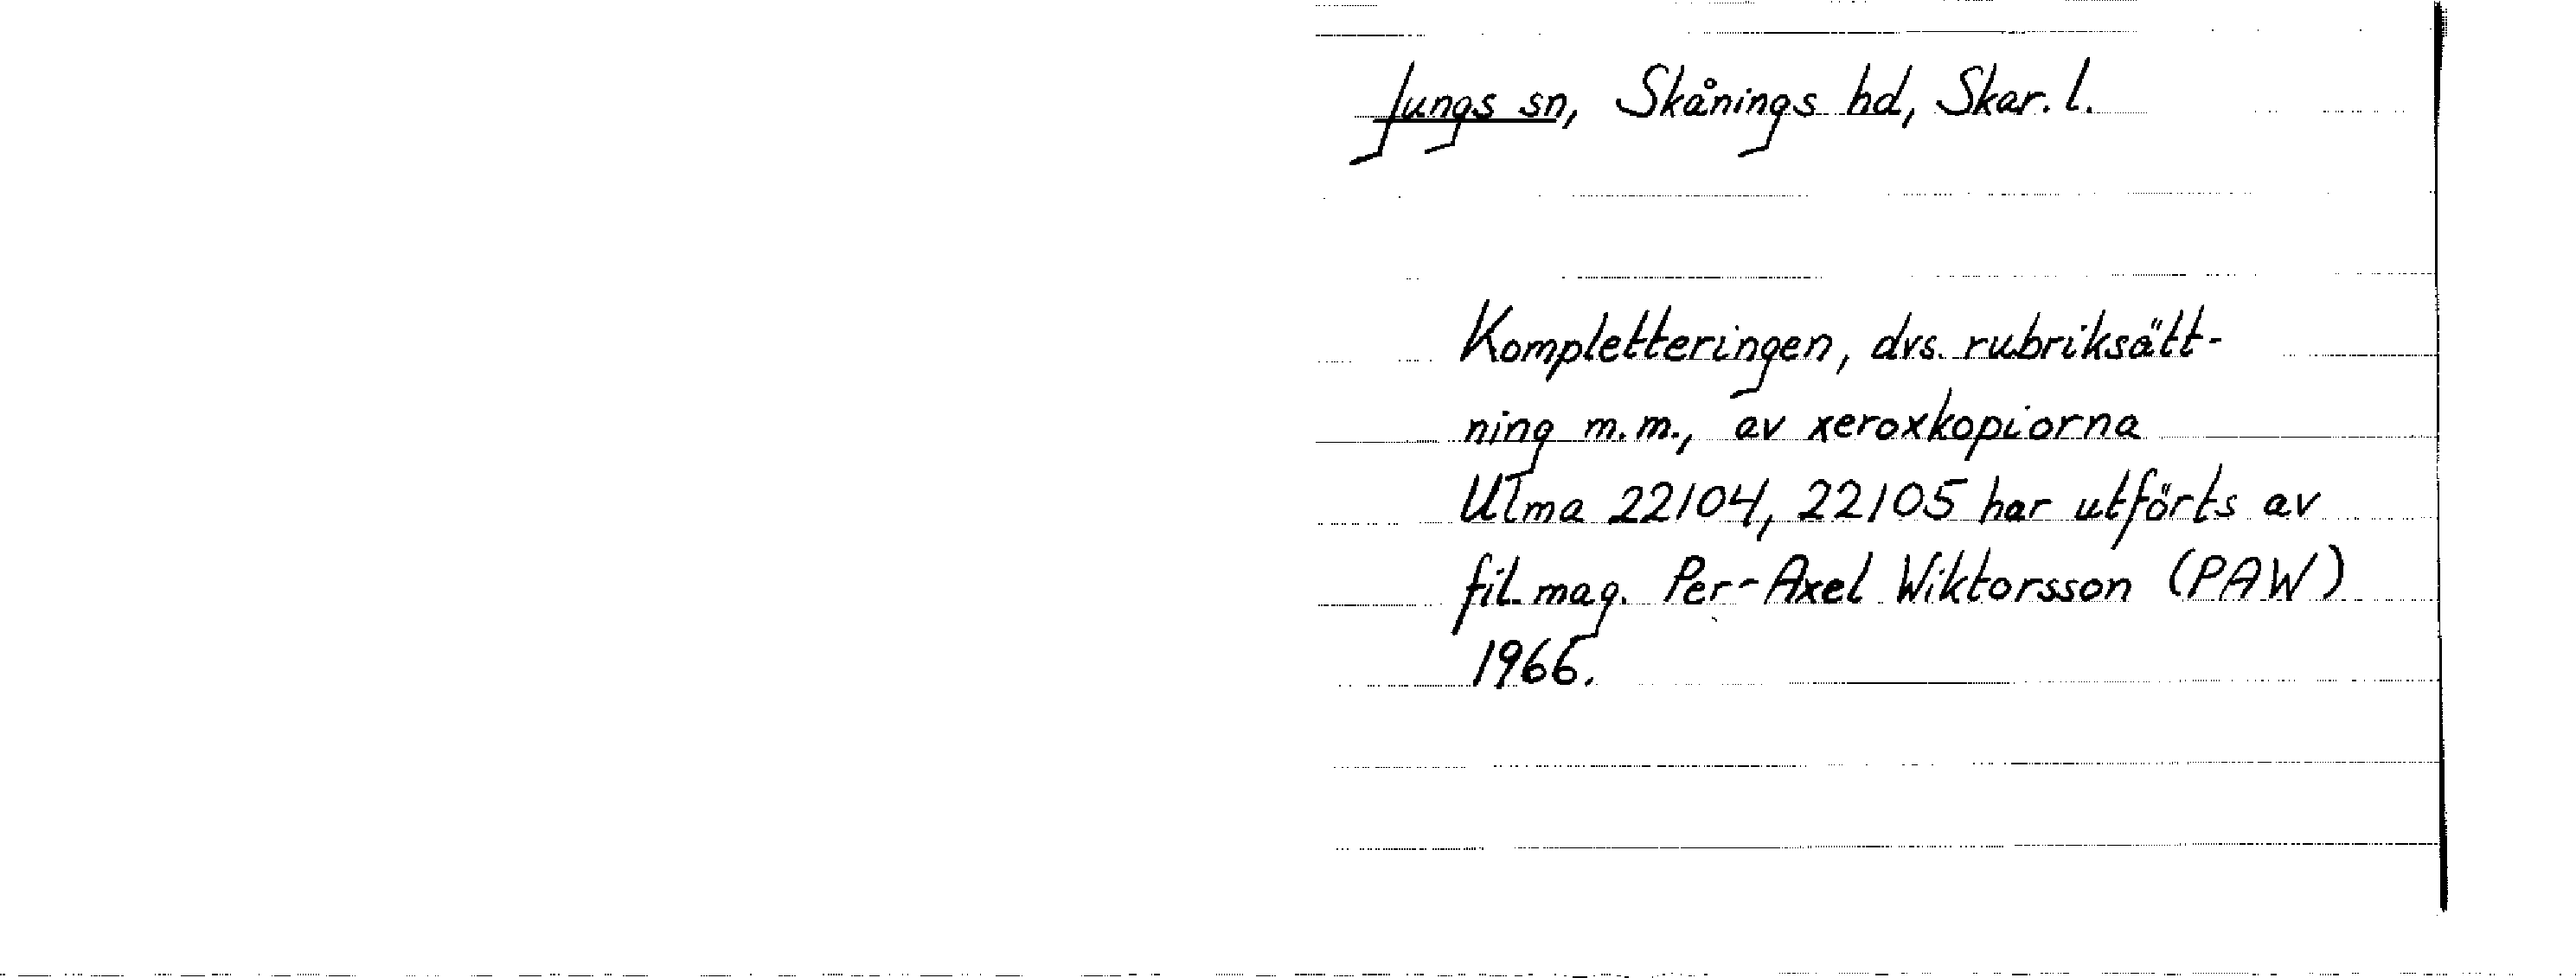 Jungs sn, Skånings hd, Skar. l.
Kompletteringen, dvs. rubriksätt-
ning m.m., av xeroxkopiorna
Ulma 22104, 22105 har utförts av
fil. mag. Per-Axel Wiktorsson (PAW)
1966.